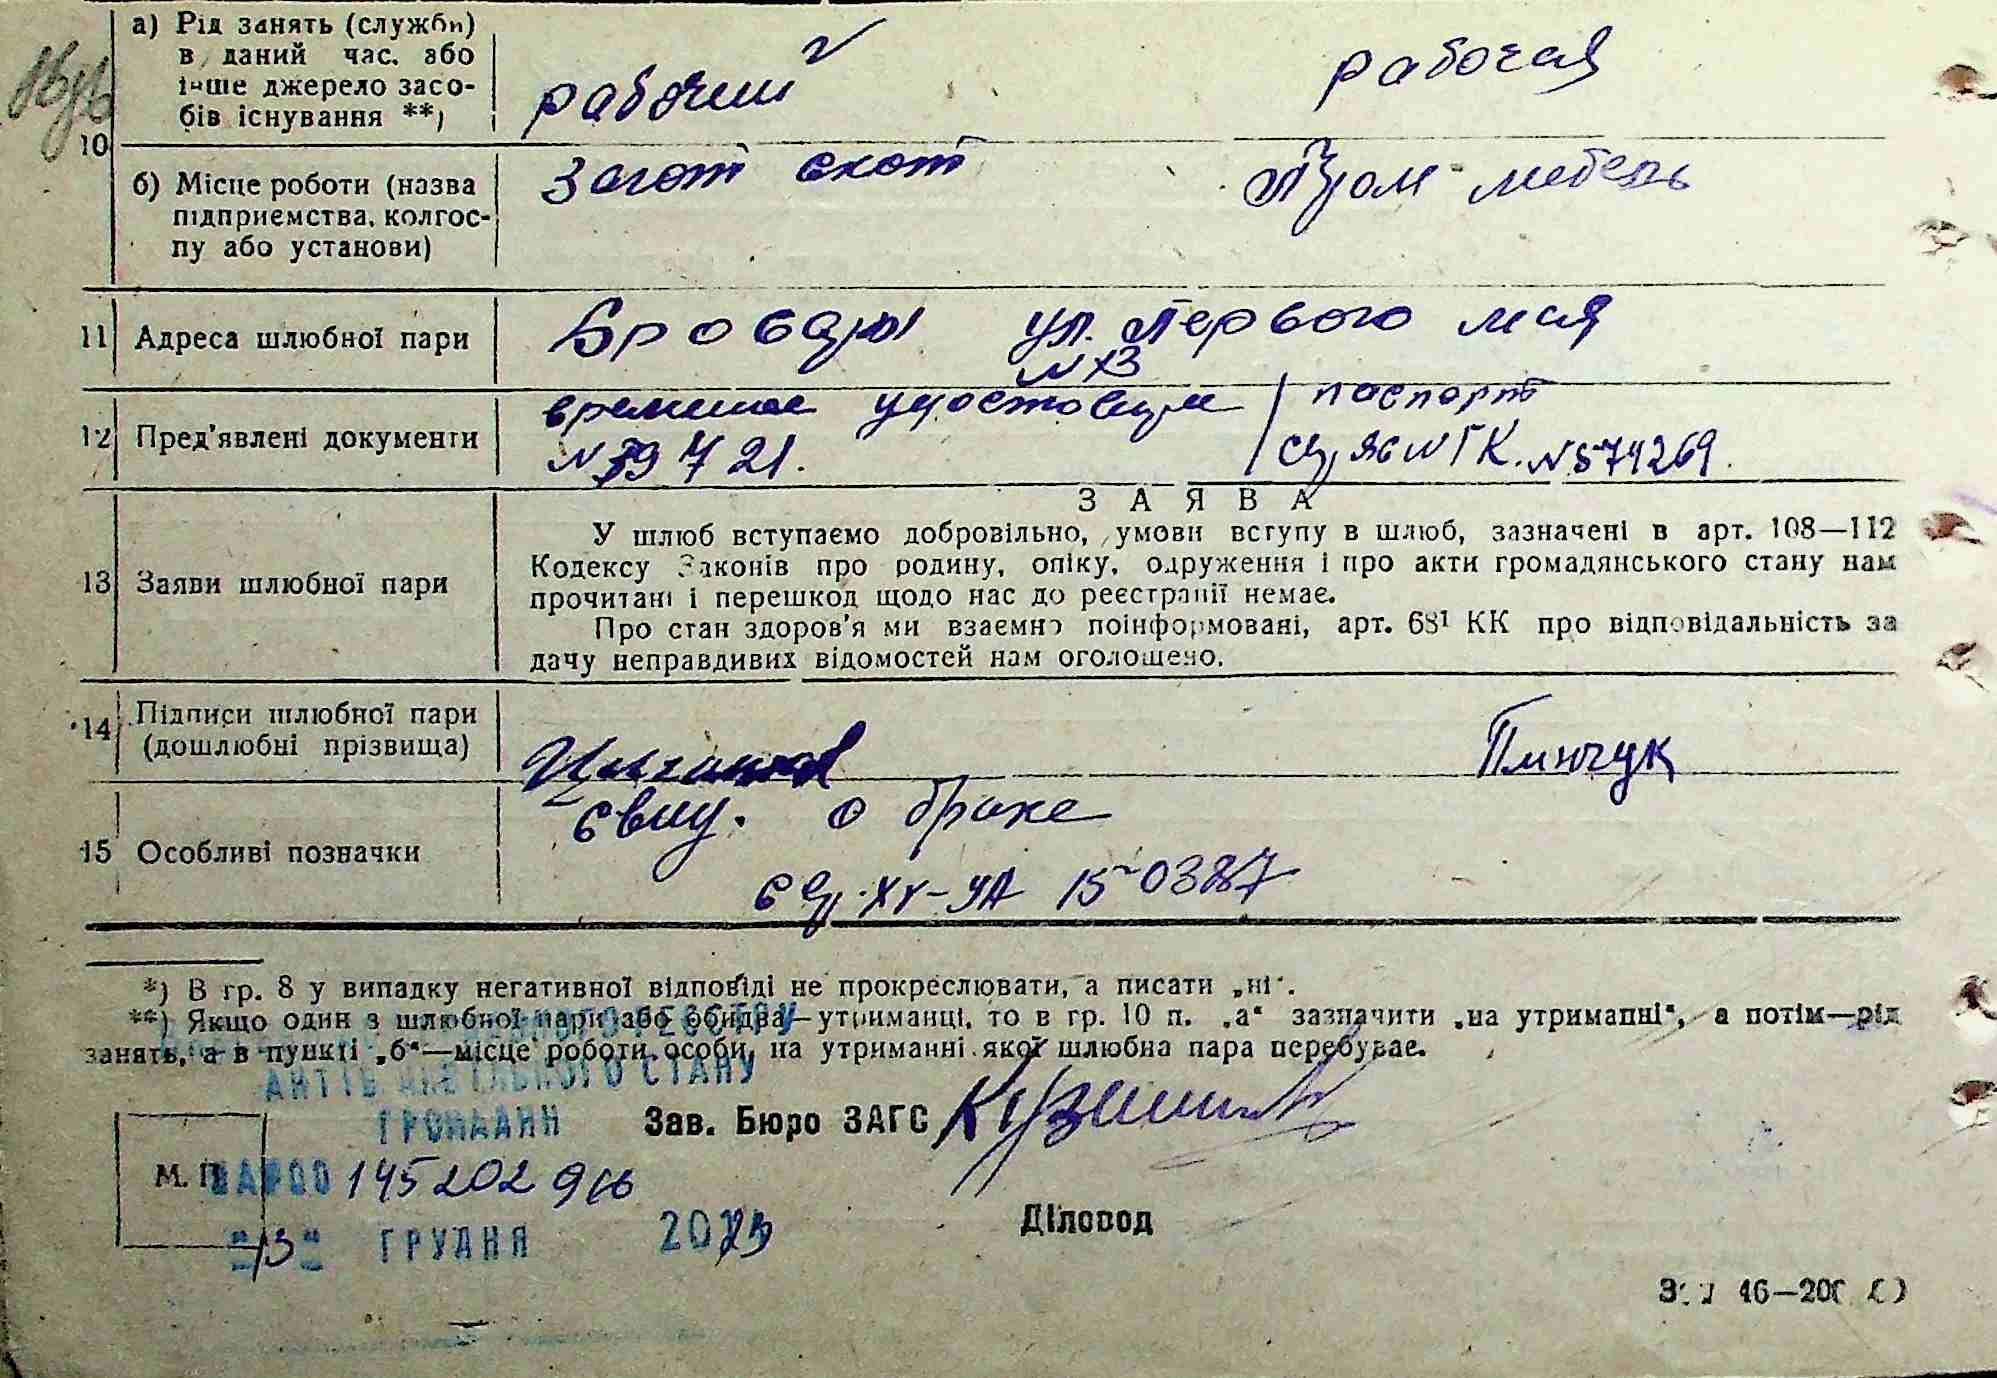 а) Рід занять (служби) в даний час. або інше джерело засобів існування **)
рабочий
рабочая
10
б) Місце роботи (назва підприємства, колгоспу або установи)
Загот скот
Пром мебель
11 Адреса шлюбної пари
Бровары ул. Первого мая
N 13
12 Пред'явлені документи
временное удостовер
паспорт
N 39721.
N 571269.
З А Я В А
13 Заяви шлюбної пари
У шлюб вступаємо добровільно, умови вступу в шлюб, зазначені в арт. 108—112
Кодексу Законів про родину, опіку, одруження і про акти громадянського стану нам
прочитані і перешкод щодо нас до реєстрації немає.
Про стан здоров'я ми взаємно поінформовані, арт. 68¹ КК про відповідальність за
дачу неправдивих відомостей нам оголошено.
14 Підписи шлюбної пари (дошлюбні прізвища)
Пинчук
15 Особливі позначки
о браке
15-0387
*) В гр. 8 у випадку негативної відповіді не прокреслювати, а писати „ні“.
**) Якщо один з шлюбної пари або обидва—утриманці, то в гр. 10 п. „а“ зазначити „на утриманні“, а потім—рід
занять, а в пункті „б“—місце роботи особи, на утриманні якої шлюбна пара перебуває.
АКТІВ ЦИВІЛЬНОГО СТАНУ
ГРОМАДЯН
Зав. Бюро ЗАГС
М. П.
145202 916
Діловод
"13" ГРУДНЯ 2023